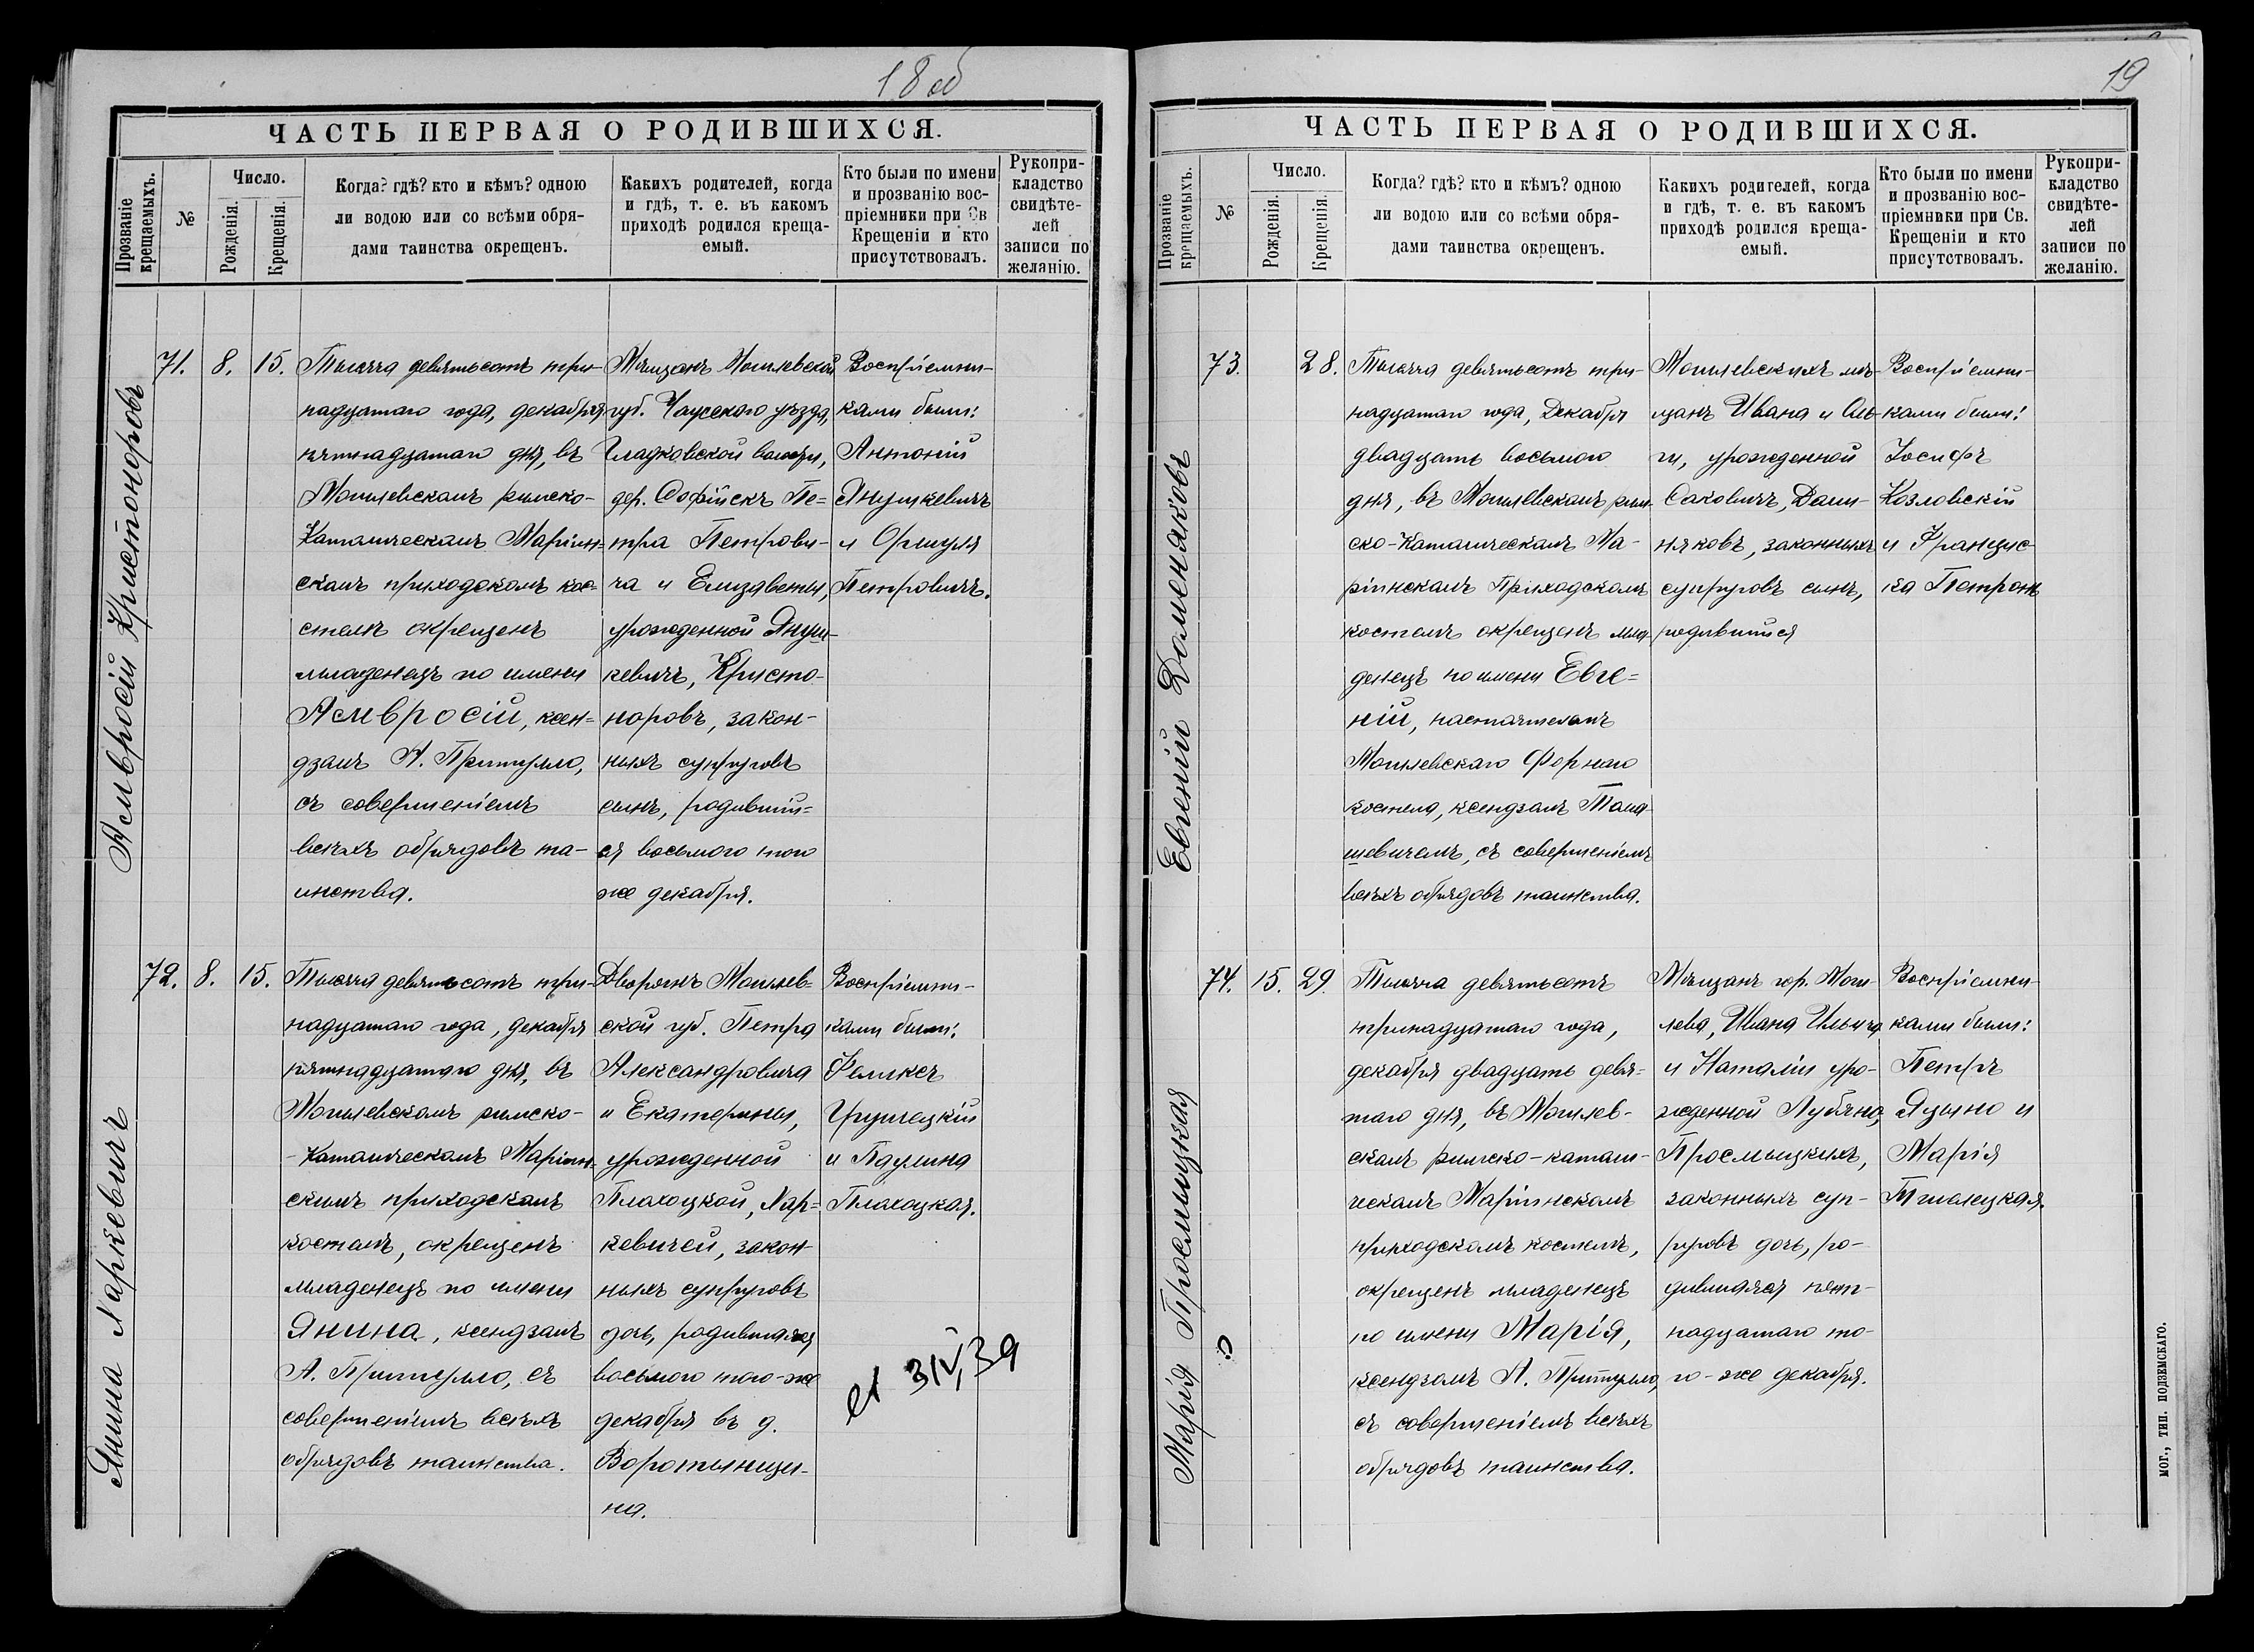 18 об
ЧАСТЬ ПЕРВАЯ О РОДИВШИХСЯ.
Прозваніе крещаемыхъ.
№
Число.
Рожденія.
Крещенія.
Когда? гдѣ? кто и кѣмъ? одною
ли водою или со всѣми обря-
дами таинства окрещенъ.
Какихъ родителей, когда
и гдѣ, т. е. въ какомъ
приходѣ родился креща-
емый.
Кто были по имени
и прозванію вос-
пріемники при Св
Крещеніи и кто
присутствовалъ.
Рукопри-
кладство
свидѣте-
лей
записи по
желанію.
Амвросій Кристоноровъ
71.
8.
15.
Тысяча девятьсотъ три-
надцатаго года, декабря
пятнадцатаго дня, въ
Могилевскомъ римско-
Католическомъ Маріин-
скомъ приходскомъ кос-
телѣ окрещенъ
младенецъ по имени
Амвросій, ксен-
дзомъ А. Притулло,
съ совершеніемъ
всѣхъ обрядовъ та-
инства.
Мѣщанъ Могилевской
губ. Чаусскаго уѣзда,
Гладковской волости,
дер. Софійскъ Пе-
тра Петрови-
ча и Елизаветы,
урожденной Януш-
кевичъ, Кристо-
норовъ, закон-
ныхъ супруговъ
сынъ, родивший-
ся восьмого того
же декабря.
Воспріемни-
ками были:
Антоній
Янушкевичъ
и Оршуля
Петровичъ.
Янина Ларкевичъ
72.
8.
15.
Тысяча девятьсотъ три-
надцатаго года, декабря
пятнадцатаго дня, въ
Могилевскомъ римско-
-Католическомъ Маріин-
скомъ приходскомъ
костелѣ, окрещенъ
младенецъ по имени
Янина, ксендзомъ
А. Притулло, съ
совершеніемъ всѣхъ
обрядовъ таинства.
Дворянъ Могилев-
ской губ. Петра
Александровича
и Екатерины,
урожденной
Плахоцкой, Лар-
кевичей, закон-
ныхъ супруговъ
дочь, родившаяся
восьмого того-же
декабря въ д.
Воротынщи-
на.
Воспріемни-
ками были:
Феликсъ
и Паулина
Плахоцкая.
19
ЧАСТЬ ПЕРВАЯ О РОДИВШИХСЯ.
Прозваніе крещаемыхъ.
№
Число.
Рожденія.
Крещенія.
Когда? гдѣ? кто и кѣмъ? одною
ли водою или со всѣми обря-
дами таинства окрещенъ.
Какихъ родителей, когда
и гдѣ, т. е. въ какомъ
приходѣ родился креща-
емый.
Кто были по имени
и прозванію вос-
пріемники при Св.
Крещеніи и кто
присутствовалъ.
Рукопри-
кладство
свидѣте-
лей
записи по
желанію.
Евгеній Доменяковъ
73.
28.
Тысяча девятьсотъ три-
надцатаго года, Декабря
двадцать восьмого
дня, въ Могилевскомъ рим-
ско-Католическомъ Ма-
ріинскомъ Приходскомъ
костелѣ окрещенъ мла-
денецъ по имени Евге-
ній, настоятелемъ
Могилевскаго Фарнаго
костела, ксендзомъ Тома-
шевичемъ, съ совершеніемъ
всѣхъ обрядовъ таинства.
Могилевскихъ мѣ-
щанъ Ивана и Оль-
ги, урожденной
Саковичъ, Доми-
няковъ, законныхъ
супруговъ сынъ,
родившийся
Воспріемни-
ками были:
Іосифъ
Козловскій
и Францис-
ка
Марія Просмыцкая
74.
15.
29.
Тысяча девятьсотъ
тринадцатаго года,
декабря двадцать девя-
таго дня, въ Могилев-
скомъ римско-католи-
ческомъ Маріинскомъ
приходскомъ костелѣ,
окрещенъ младенецъ
по имени Марія,
ксендзомъ А. Притулло,
съ совершеніемъ всѣхъ
обрядовъ таинства.
Мѣщанъ гор. Моги-
лева, Ивана Ильича
и Наталіи уро-
жденной
Просмыцкихъ,
законныхъ суп-
руговъ дочь, ро-
дившаяся пят-
надцатаго то-
го-же декабря.
Воспріемни-
ками были:
Петръ
Яцыно и
Марія
МОГ., ТИП. ПОДЗЕМСКАГО.